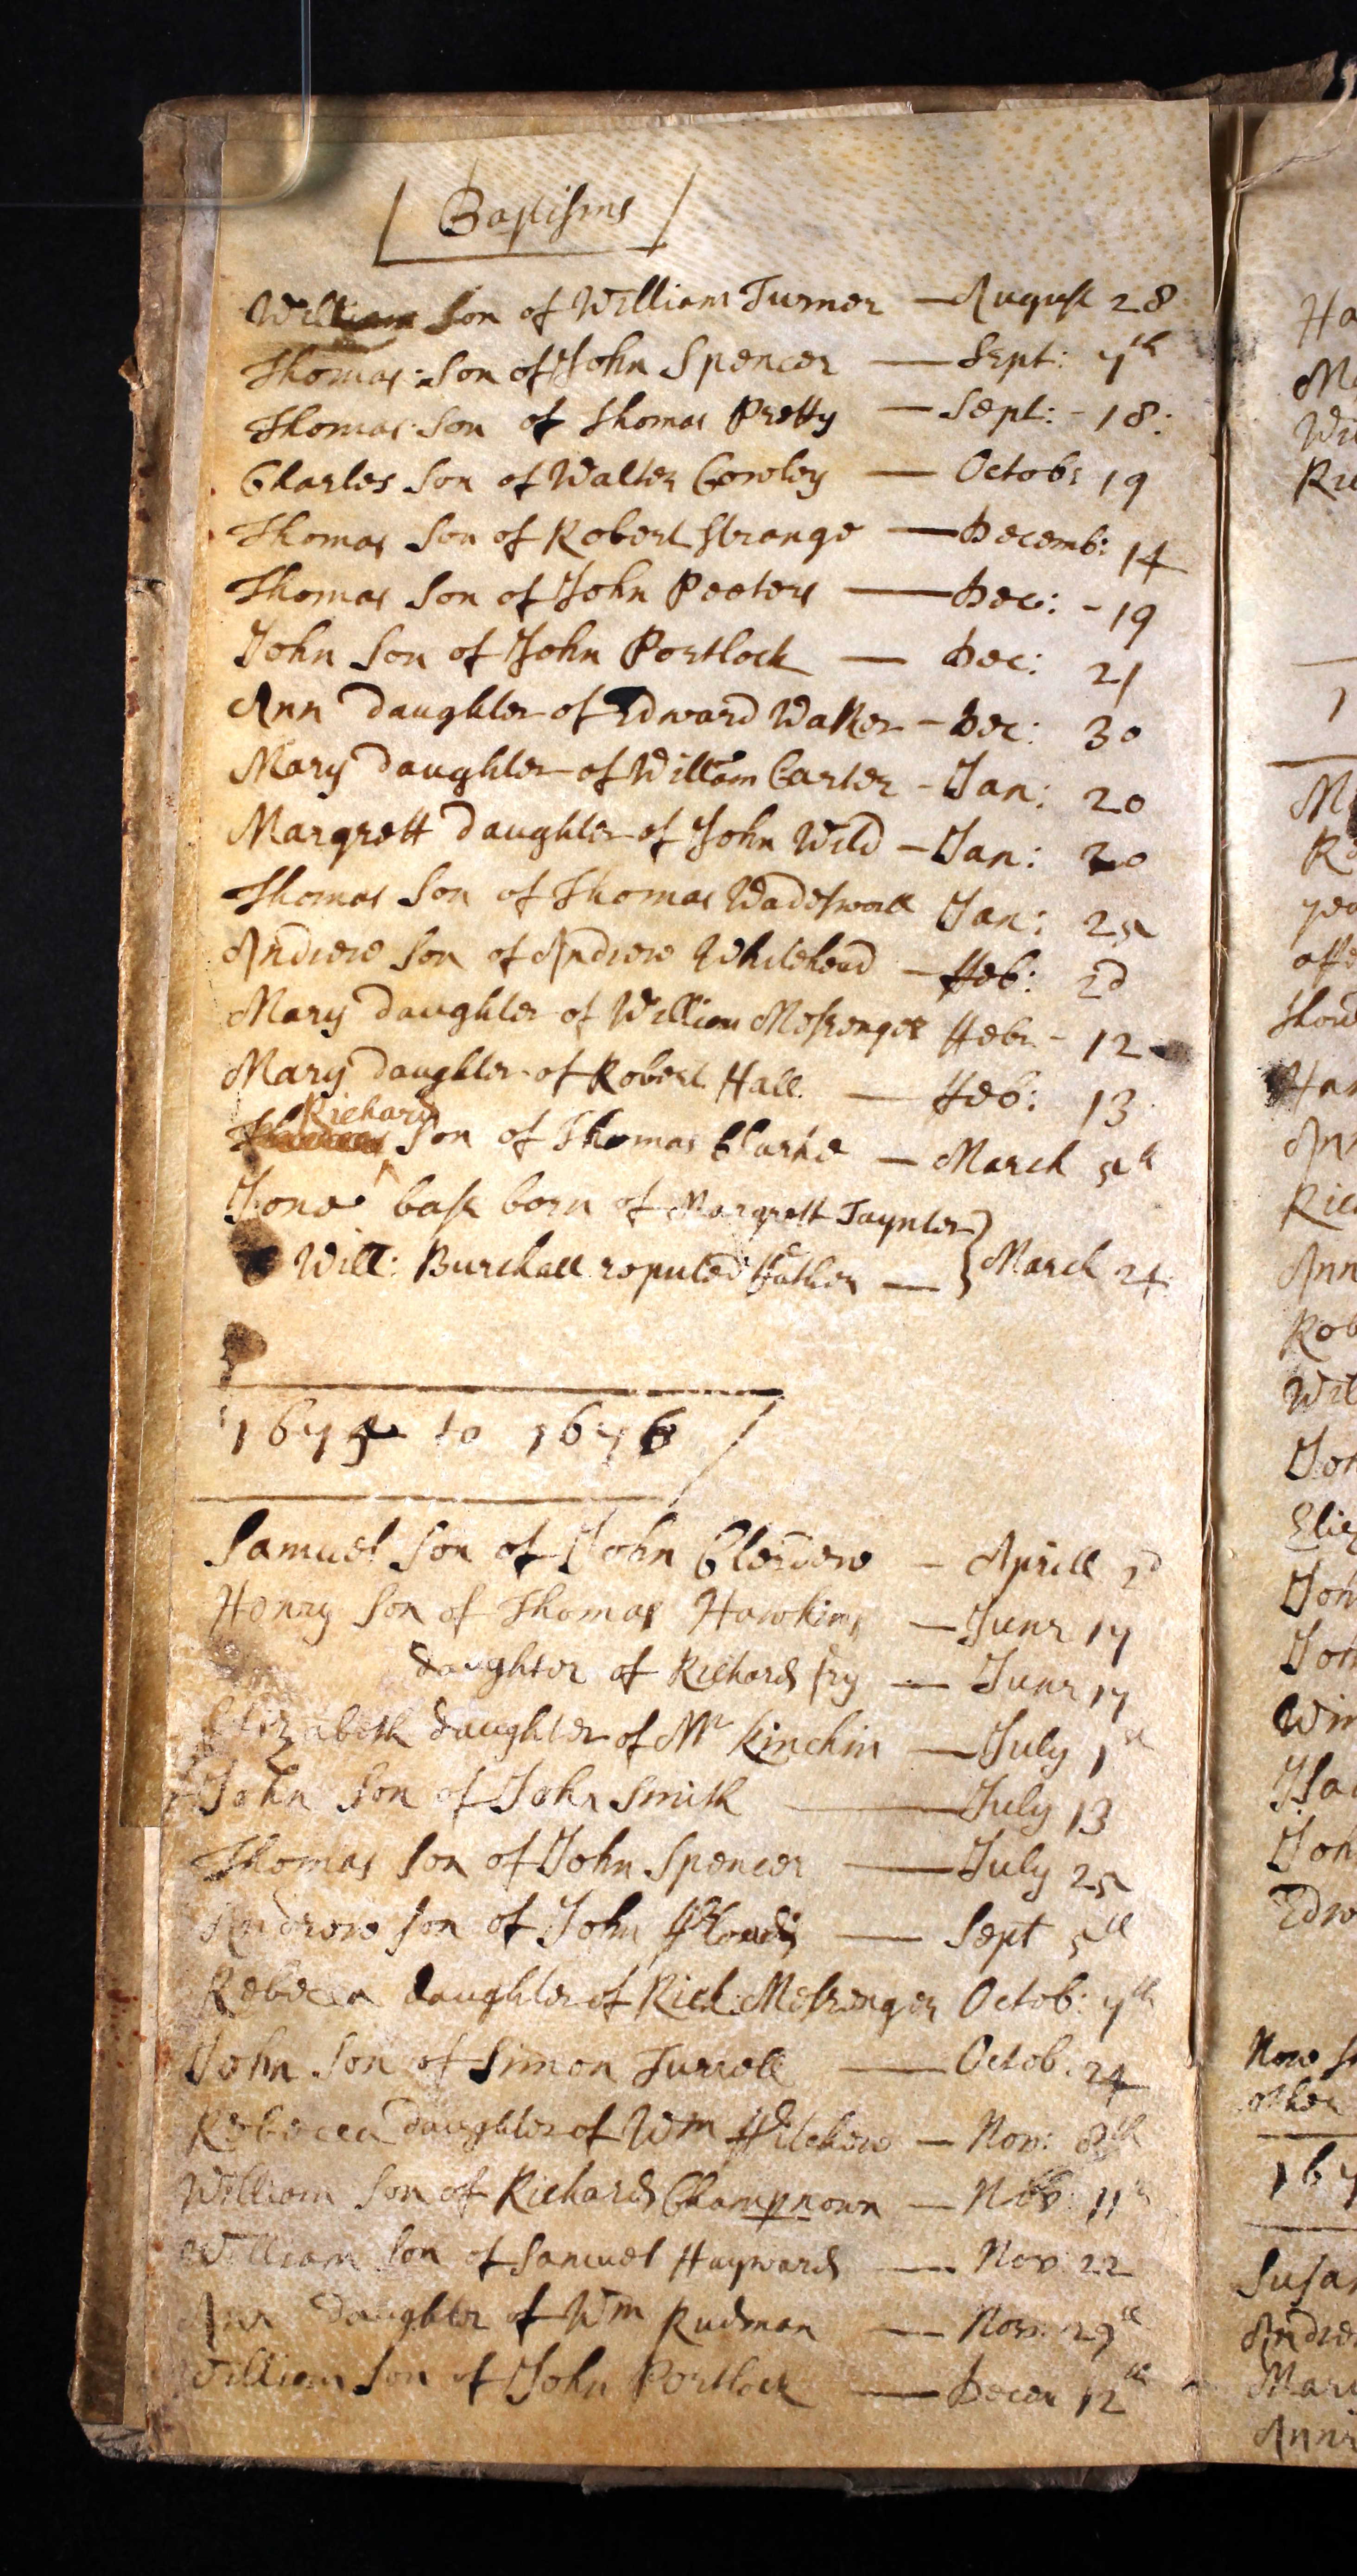 Baptisms
William Son of William Turner — August 28
Thomas: Son of John Spencer — Sept: 7th
Thomas: Son of Thomas Pretty — Sept: - 18:
Charles Son of Walter Cowley — Octobr 19
Thomas Son of Robert Strange — Decemb: 14
Thomas Son of John Peeters — Dec: - 19
John Son of John Portlock — Dec: 21
Ann daughter of Edward Walker - Dec: 30
Mary daughter of William Carter - Jan: 20
Margrett daughter of John Wild - Jan: 20
Thomas Son of Thomas Jan: 25
Andrew Son of Andrew Whitehead - ffeb: 2d
Mary daughter of William Messenger ffebr - 12
Mary daughter of Robert Hall — ffeb: 13
Richard
Thomas Son of Thomas Clarke — March 5th
Jone base born of Margrett Taynter
Will: Burchall reputed ffather — } March 24
1675 to 1676
Samuel Son of John — Aprill 2d
Henry Son of Thomas Hawkins — June 17
daughter of Richard fry — June 17
Elizabeth daughter of Mr Kinchin — July 1st
John Son of John Smith — July 13
Thomas Son of John Spencer — July 25
Andrew son of John — Sept 5th
Rebecca daughter of Rich: Messenger Octob: 7th
John Son of Simon Turrell — Octob. 24
Rebecca daughter of Wm — Nov: 8th
William Son of Richard Champnown — Nov: 11th
William Son of Samuel Hayward — Nov 22
Ann daughter of Wm Rudman — Nov: 29th
William Son of John Portlock — Decem 12th